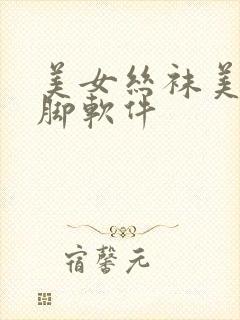 美女丝袜美
脚軟件
宿馨元